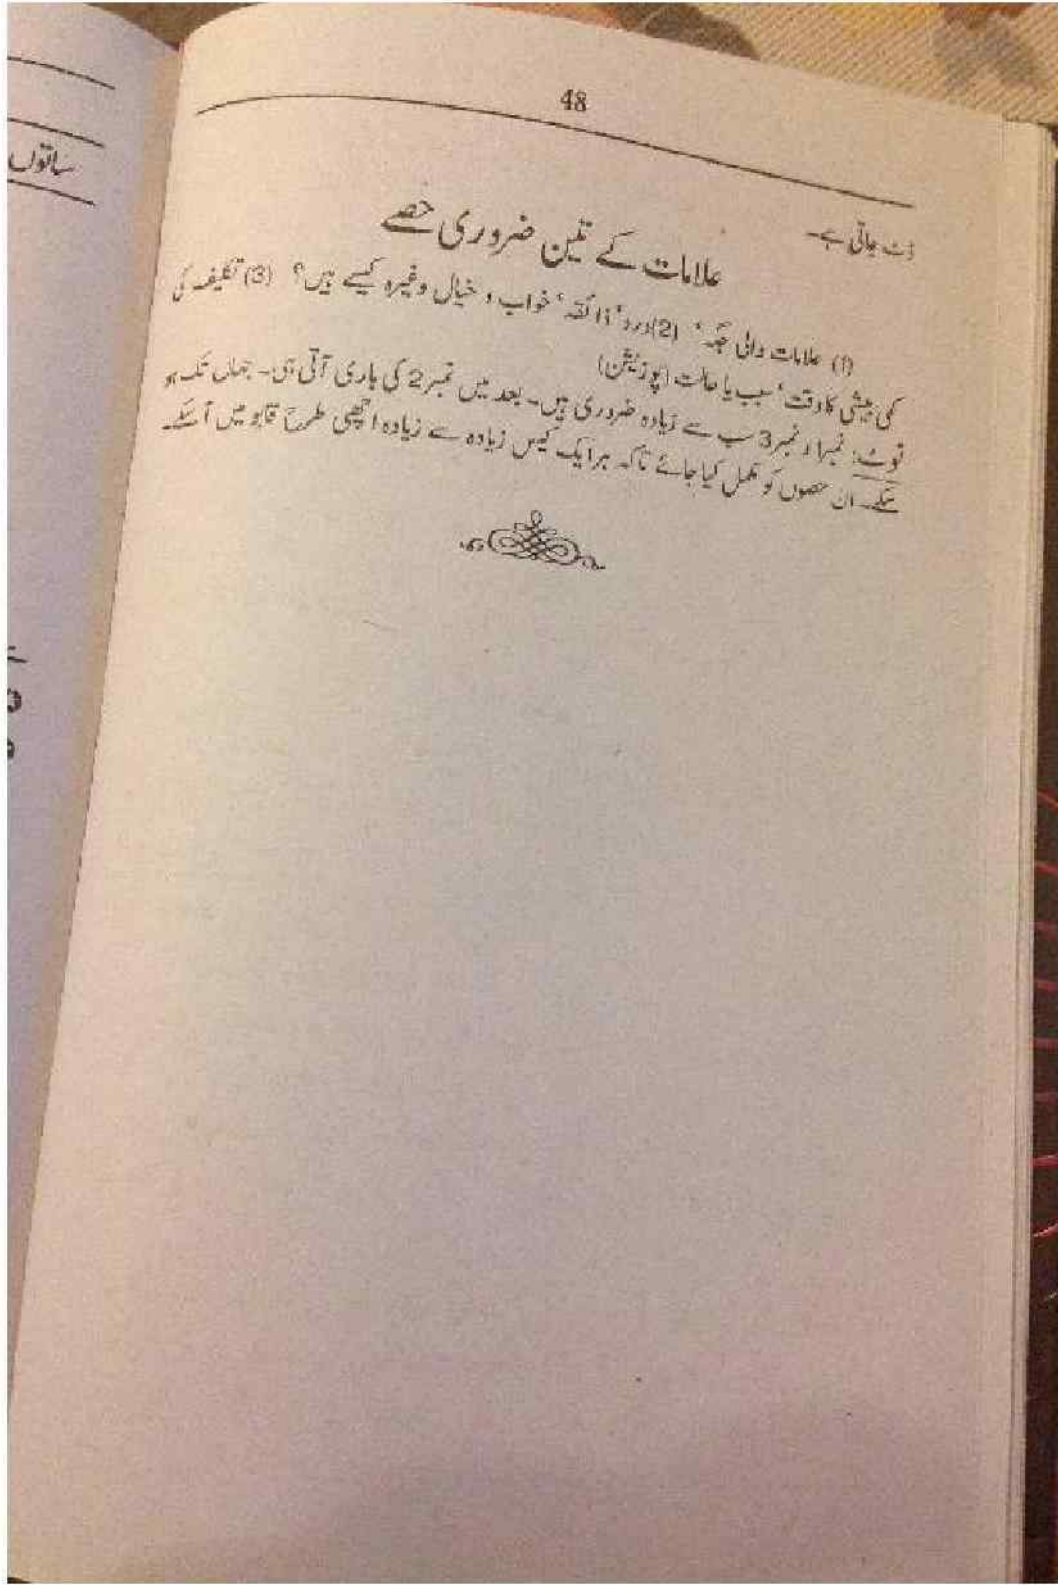 48
جاتی ہے۔
علامات کے تین ضروری حصے
(۱) علامات والی جگہ‘ (2) درد‘ ذائقہ‘ خواب و خیال وغیرہ کیسے ہیں؟ (3) تکلیف کی
کمی بیشی کا وقت‘ سبب یا حالت (پوزیشن)
نوٹ: نمبر۱ و نمبر3 سب سے زیادہ ضروری ہیں۔ بعد میں نمبر2 کی باری آتی ہی۔ جہاں تک ہو
سکے۔ ان حصوں کو مکمل کیا جائے تاکہ ہر ایک کیس زیادہ سے زیادہ اچھی طرح قابو میں آ سکے۔
ساتوں